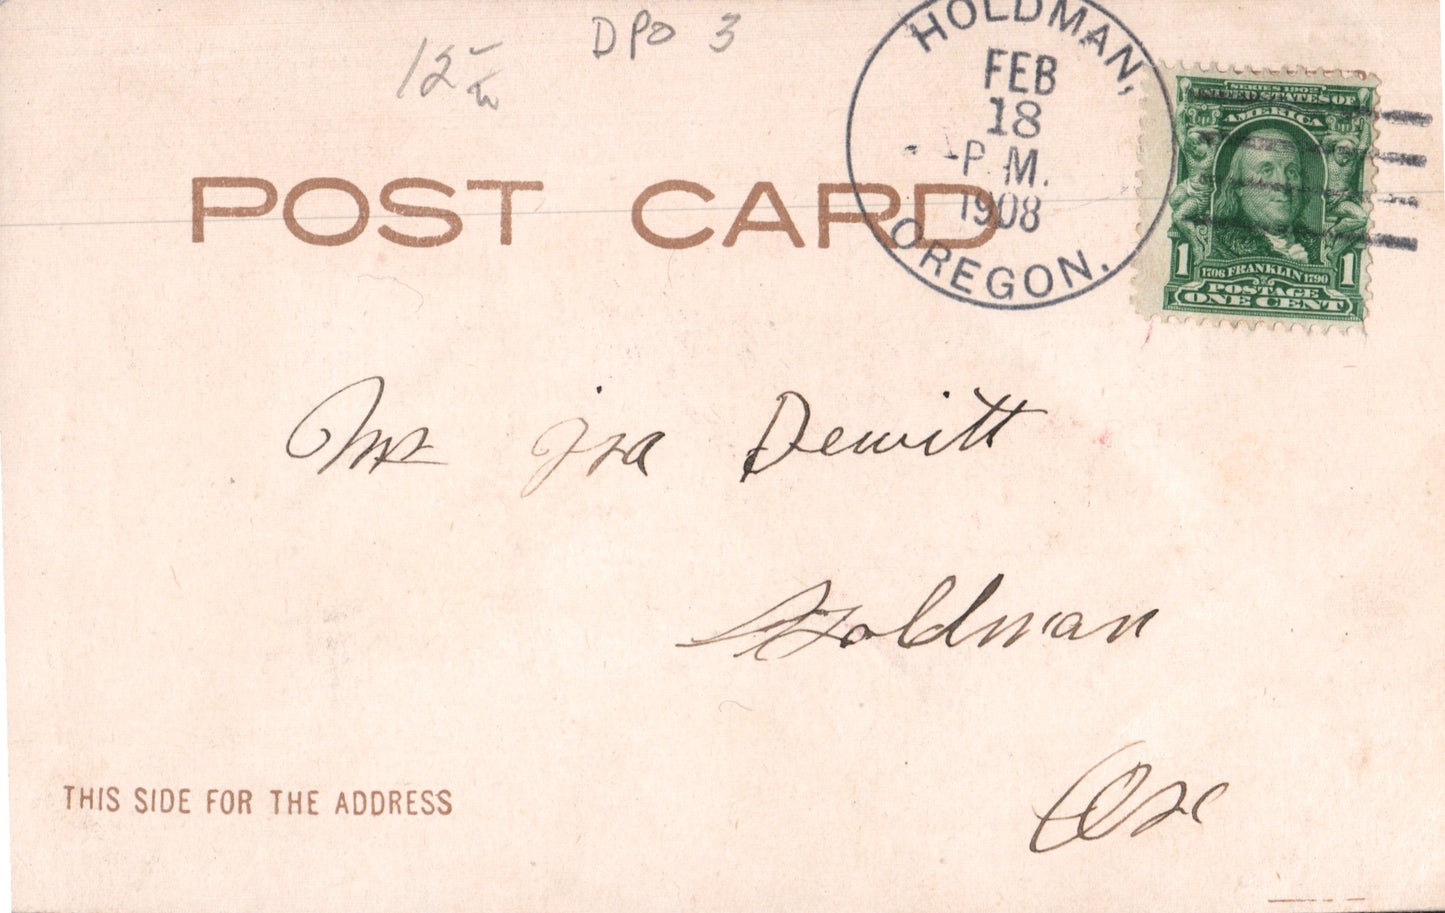 DPO 3
12
HOLDMAN,
FEB
18
P.M.
1908
OREGON.
SERIES 1902
UNITED STATES OF
AMERICA
1 1
1706 FRANKLIN 1790
POSTAGE
ONE CENT
POST CARD
Mr Ira Dewitt
Holdman
Ore
THIS SIDE FOR THE ADDRESS